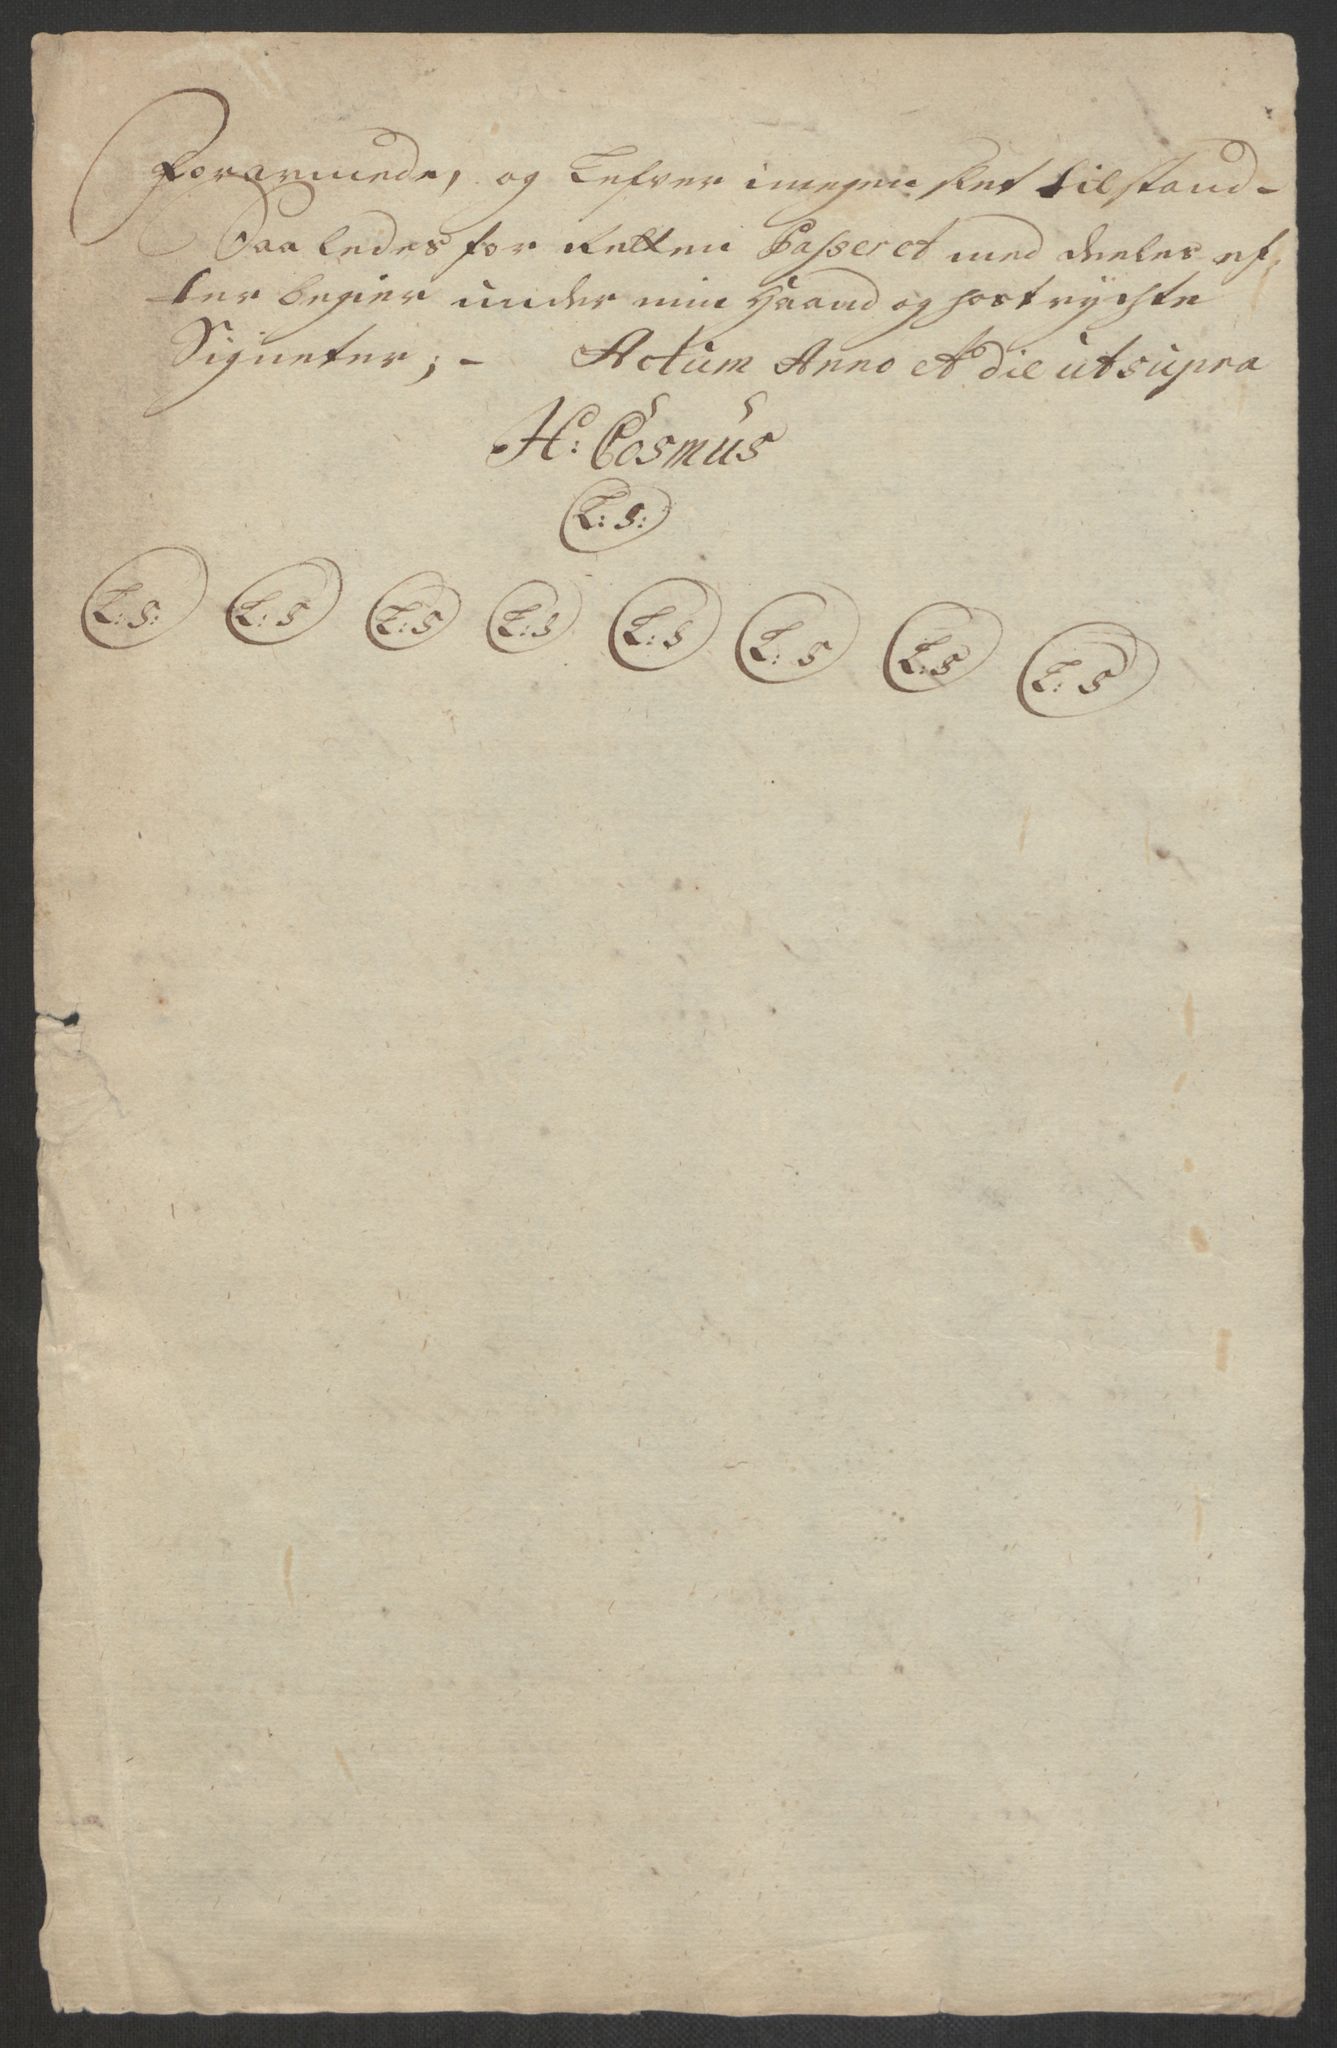 Forarmede, og Lefver i megen slet tilstand -
Saaledes for Retten Passeret med deeles ef,,
ter begier under min Haand og hostrychte
Signeter; - Actum Anno et die ut supra
H: Cosmus
L: S:
L: S: L: S L: S L: S L: S L: S L: S L: S